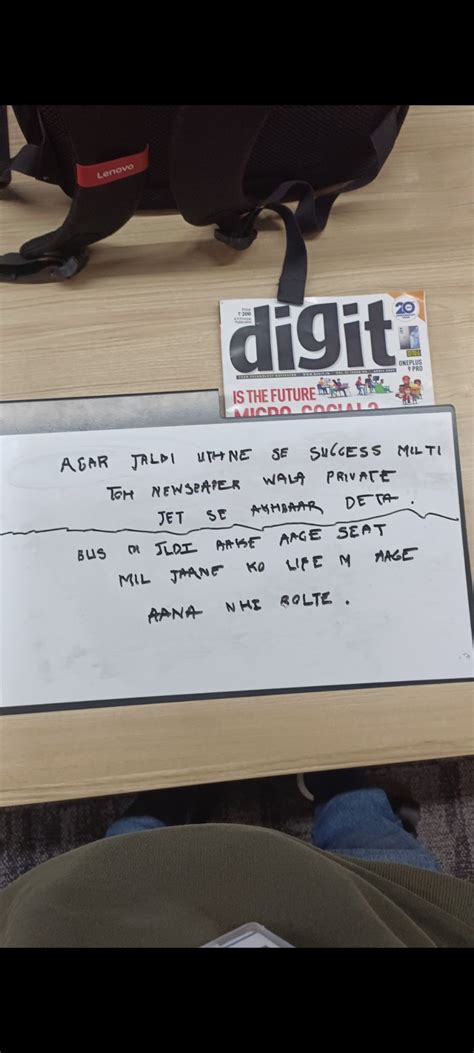 Lenovo
digit
20
ONEPLUS
9 PRO
IS THE FUTURE
MICRO-SOCIAL?
AGAR JALDI UTHNE SE SUCCESS MILTI
TOH NEWSPAPER WALA PRIVATE
JET SE AKHBAAR DETA.
BUS DI JLDI AAKE AAGE SEAT
MIL JAANE KO LIFE M AAGE
AANA NHI BOLTE.